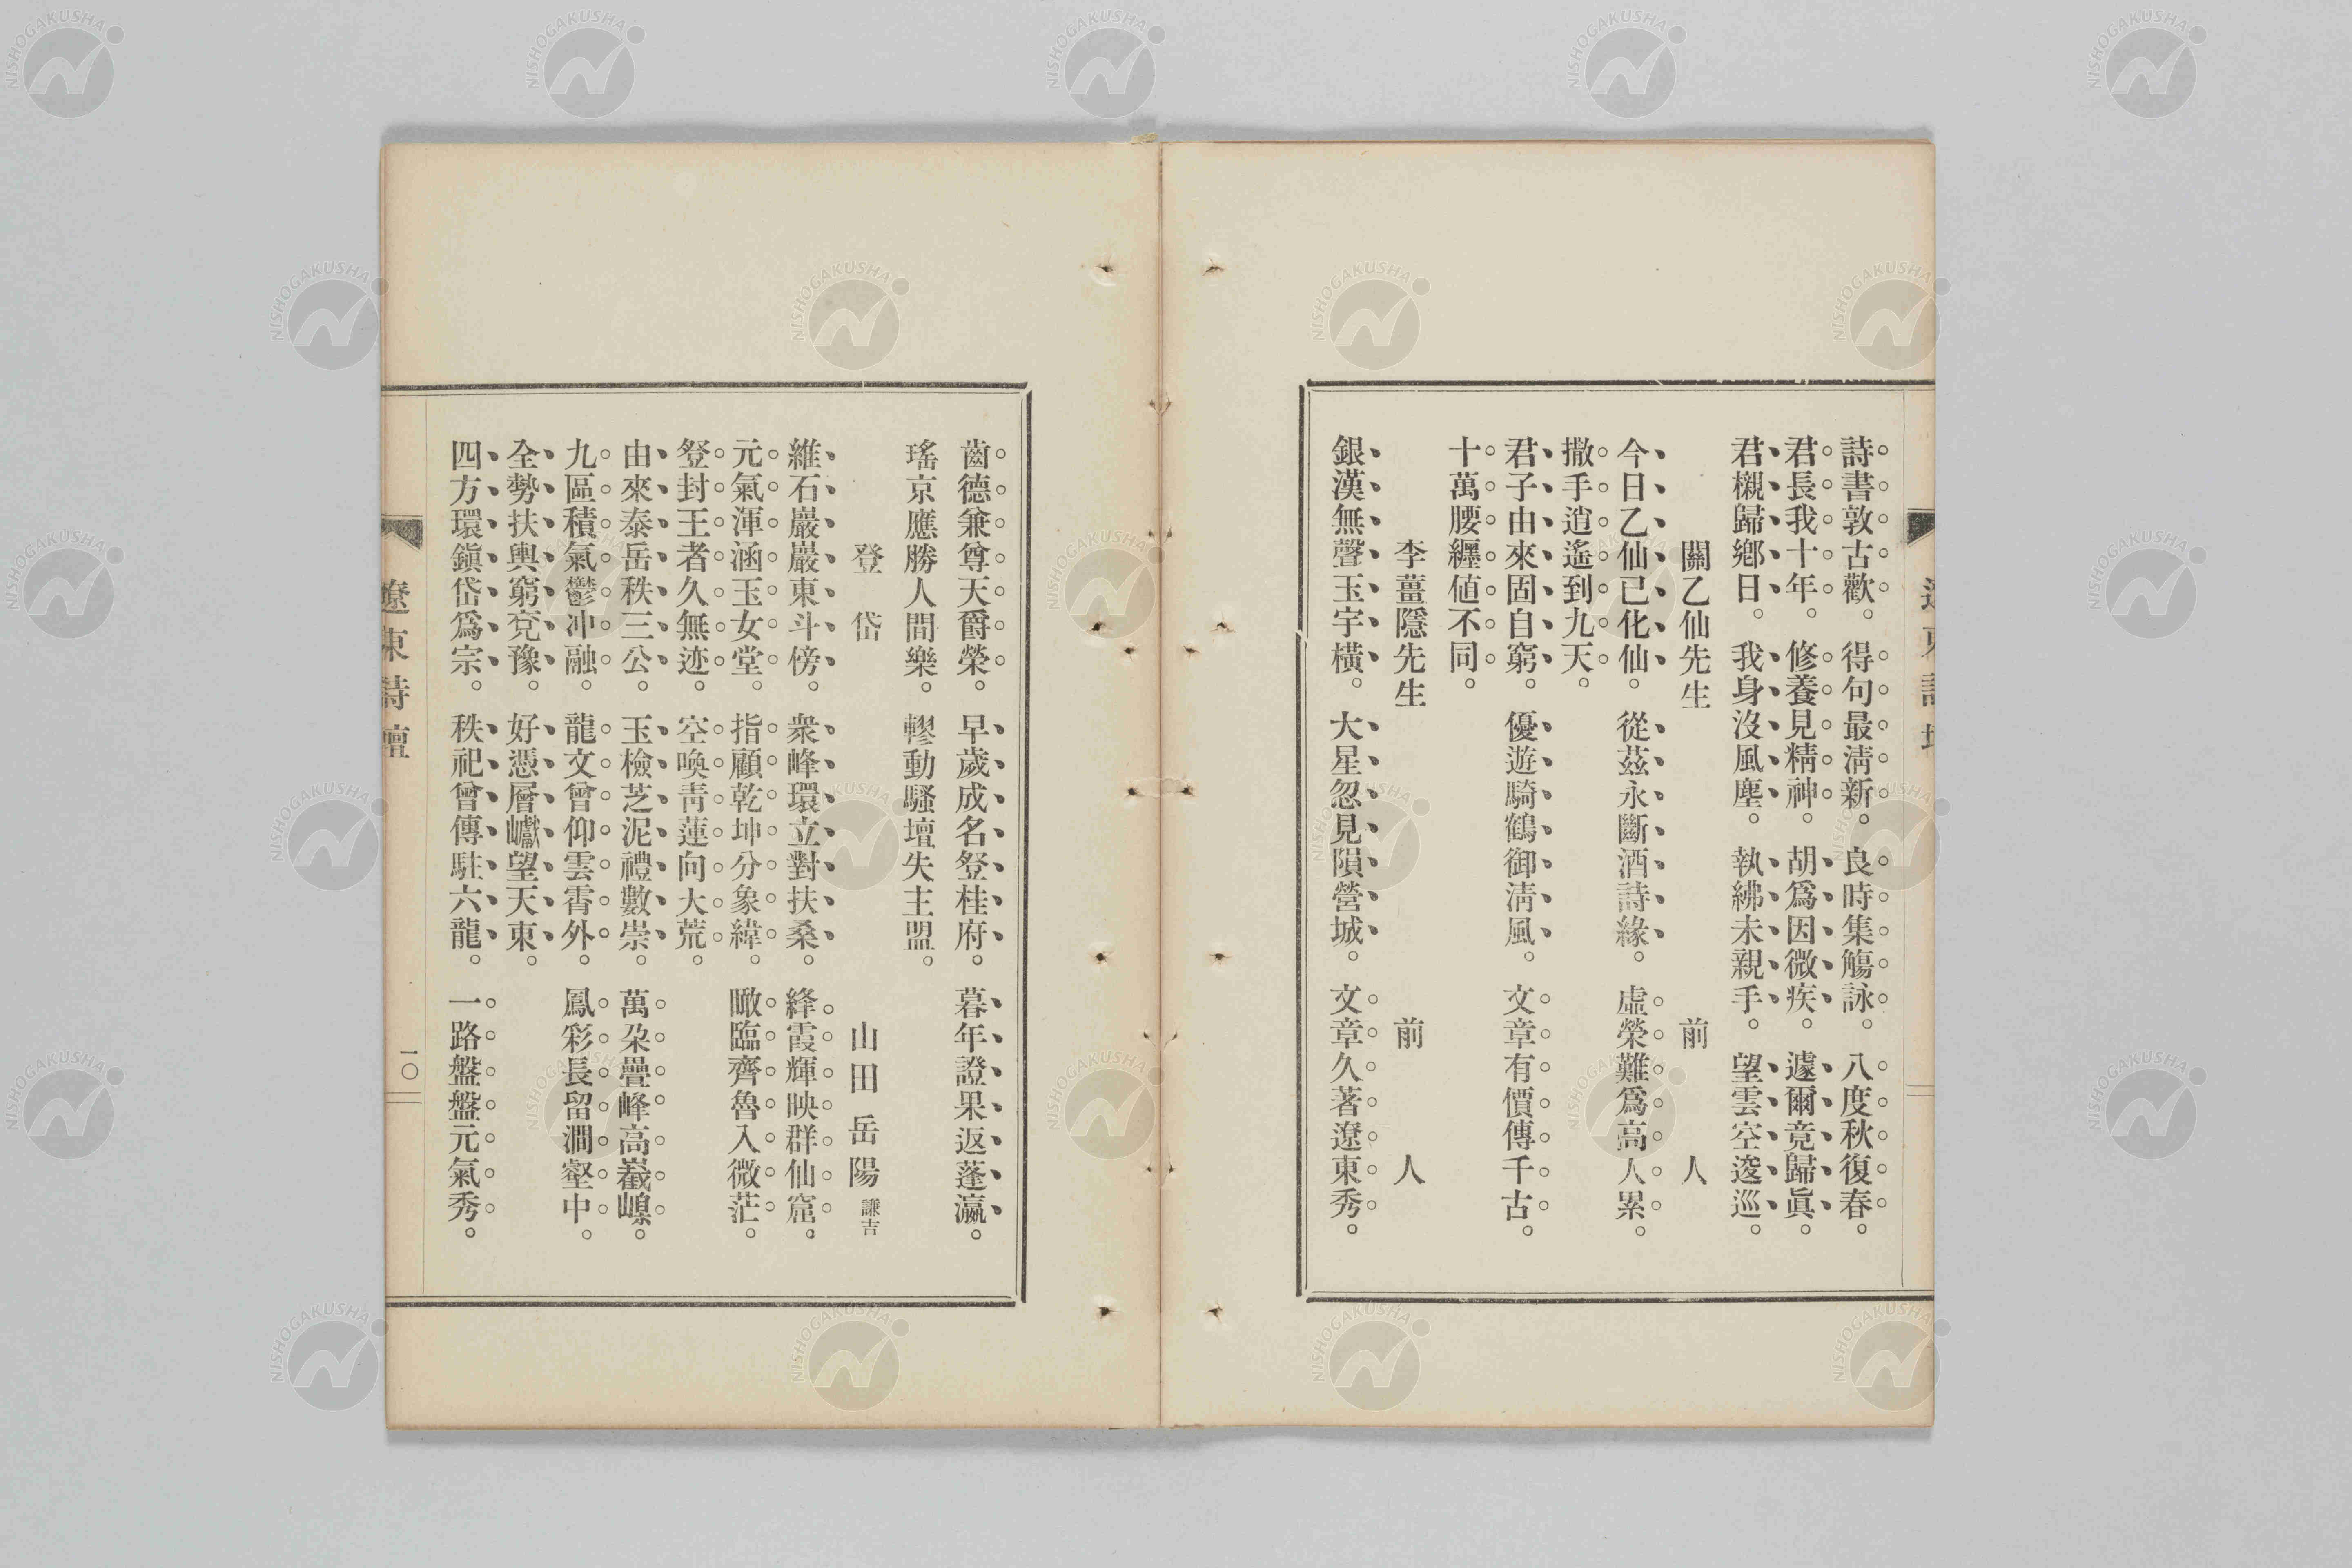 詩書敦古歡。得句最淸新。良時集觴詠。八度秋復春。
君長我十年。修養見精神。胡爲因微疾。遽爾竟歸眞。
君櫬歸鄕日。我身沒風塵。執紼未親手。望雲空逡巡。
關乙仙先生 前人
今日乙仙已化仙。從茲永斷酒詩緣。虛榮難爲高人累。
撒手逍遙到九天。
君子由來固自窮。優遊騎鶴御淸風。文章有價傳千古。
十萬腰纒値不同。
李薑隱先生 前人
銀漢無聲玉宇橫。大星忽見隕營城。文章久著遼東秀。
齒德兼尊天爵榮。早歲成名登桂府。暮年證果返蓬瀛。
瑤京應勝人間樂。轇動騷壇失主盟。
登岱 山田岳陽 謙吉
維石巖巖東斗傍。衆峰環立對扶桑。絳霞輝映群仙窟。
元氣渾涵玉女堂。指顧乾坤分象緯。瞰臨齊魯入微茫。
登封王者久無迹。空喚靑蓮向大荒。
由來泰岳秩三公。玉檢芝泥禮數崇。萬朶疊峰高嶻嵲。
九區積氣鬱冲融。龍文曾仰雲霄外。鳳彩長留澗壑中。
全勢扶輿窮兗豫。好憑層巘望天東。
四方環鎭岱爲宗。秩祀曾傳駐六龍。一路盤盤元氣秀。
遼東詩壇
一〇